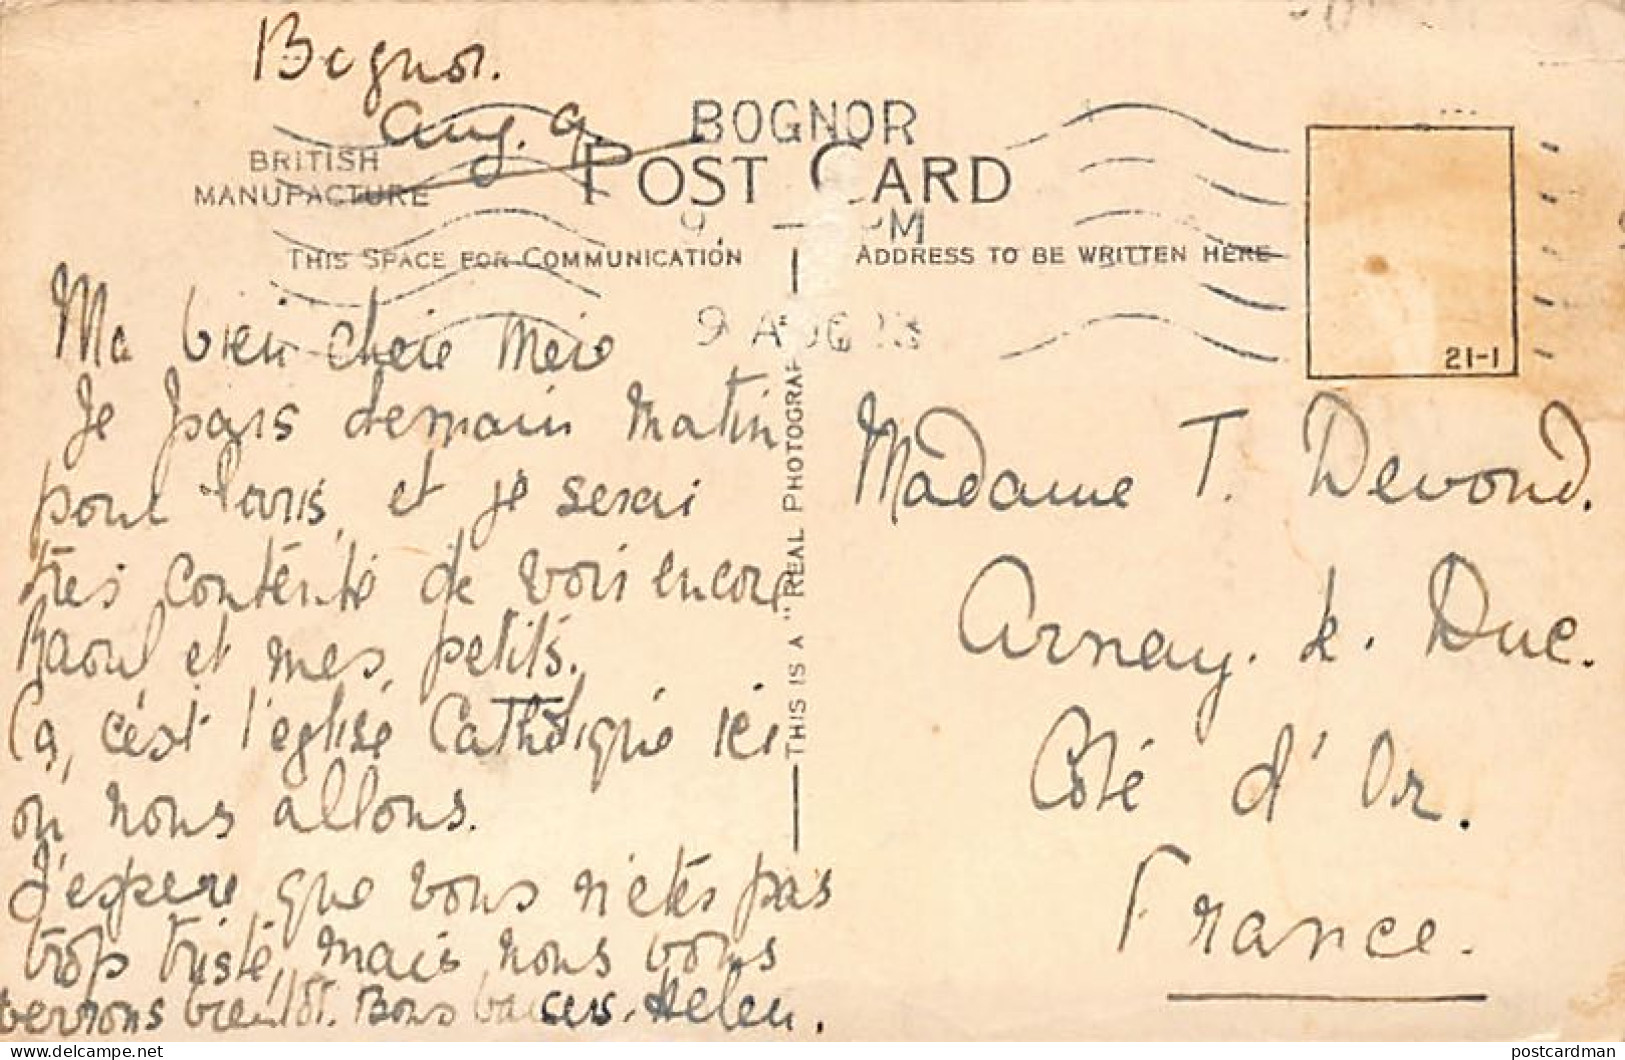 Bognor.
Aug. 9
BOGNOR
BRITISH
MANUFACTURE
POST CARD
9 PM
THIS SPACE FOR COMMUNICATION
ADDRESS TO BE WRITTEN HERE
9 AUG
21-1
Ma bien chère Mère
Je pars demain matin
pour Paris, et je serai
très contente de voir encore
Raoul et mes petits.
Ça, c'est l'eglise Catholique ici
où nous allons.
J'espere que vous n'etes pas
trop triste, mais nous vous
verrons bientôt. Bons baisers. Helen.
THIS IS A "REAL PHOTOGRAP
Madame T. Devond.
Arnay. le. Duc.
Côte d'Or.
France.
delcampe.net
postcardman